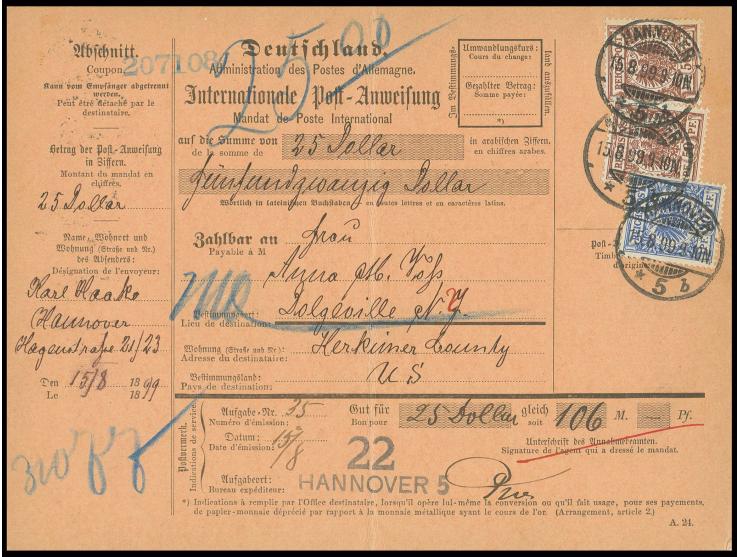 Abschnitt.
Coupon.
207108
Kann vom Empfänger abgetrennt
werden.
Peut être détaché par le
destinataire.
Betrag der Post-Anweisung
in Ziffern.
Montant du mandat en
chiffres.
25 Dollar
Name, Wohnort und
Wohnung (Straße und Nr.)
des Absenders:
Désignation de l'envoyeur:
Karl Haake
Hannover
Hagenstraße 21/23
Den
Le
15/8 1899
25 00
Deutschland.
Administration des Postes d'Allemagne.
Internationale Post-Anweisung
Mandat de Poste International
Im Bestimmungs-
land auszufüllen.
Umwandlungskurs:
Cours du change:
Gezahlter Betrag:
Somme payée:
*)
auf die Summe von
de la somme de
25 Dollar
in arabischen Ziffern.
en chiffres arabes.
Fünfundzwanzig Dollar
Wörtlich in lateinischen Buchstaben / en toutes lettres et en caractères latins.
Zahlbar an
Payable à M
Frau
Anna M. Voss
Bestimmungsort:
Lieu de destination:
Dolgeville N.Y.
Wohnung (Straße und Nr.):
Adresse du destinataire:
Herkimer County
Bestimmungsland:
Pays de destination:
US
HANNOVER
15.8.99.9-10N.
* 5 b
HANNOVER
15.8.99.9-10N.
* 5 b
HANNOVER
15.8.99.9-10N
* 5 b
Post-
Timbre
d'origine
Postvermerk.
Indications de service.
Aufgabe-Nr.
Numéro d'émission:
35
Datum:
Date d'émission:
15/8
Aufgabeort:
Bureau expéditeur:
22
HANNOVER 5
Gut für
Bon pour
25 Dollar
gleich
soit
106 M. — Pf.
Unterschrift des Annahmebeamten.
Signature de l'agent qui a dressé le mandat.
*) Indications à remplir par l'Office destinataire, lorsqu'il opère lui-même la conversion ou qu'il fait usage, pour ses payements,
de papier-monnaie déprécié par rapport à la monnaie métallique ayant le cours de l'or. (Arrangement, article 2.)
A. 24.